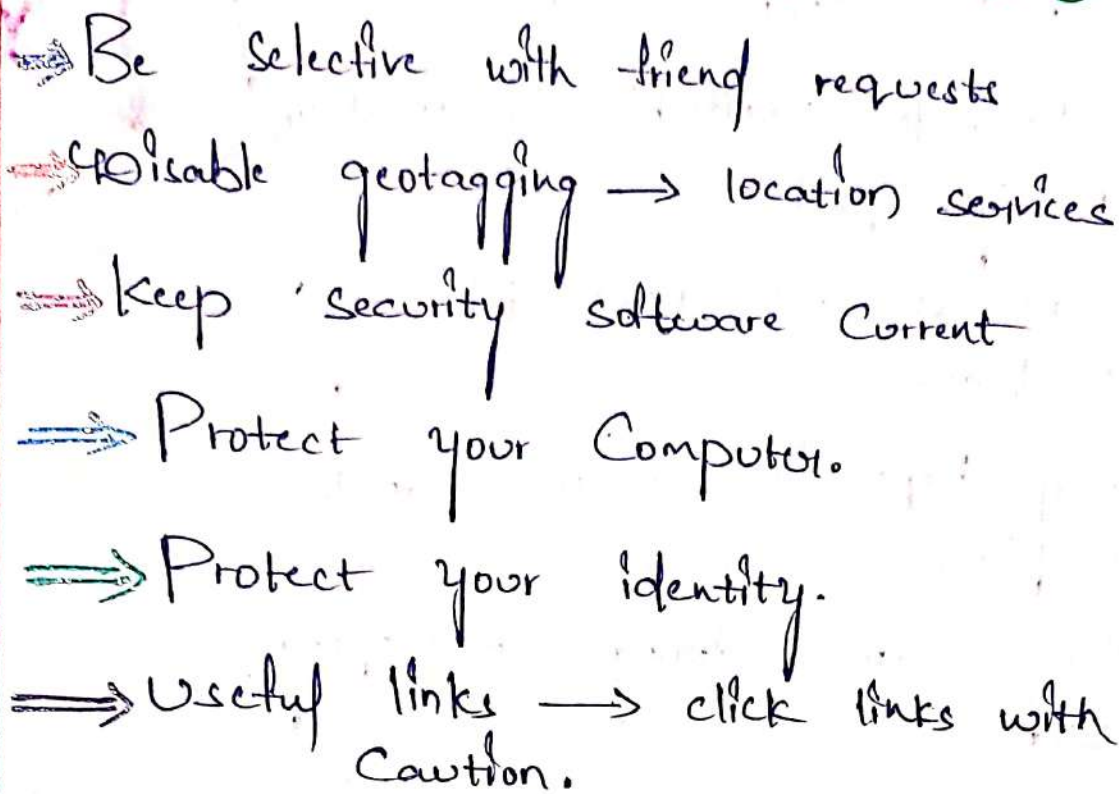 ⇒ Be selective with friend requests
⇒ Disable geotagging → location services
⇒ Keep security software Current
⇒ Protect your Computer.
⇒ Protect your identity.
⇒ Useful links → click links with
Caution.